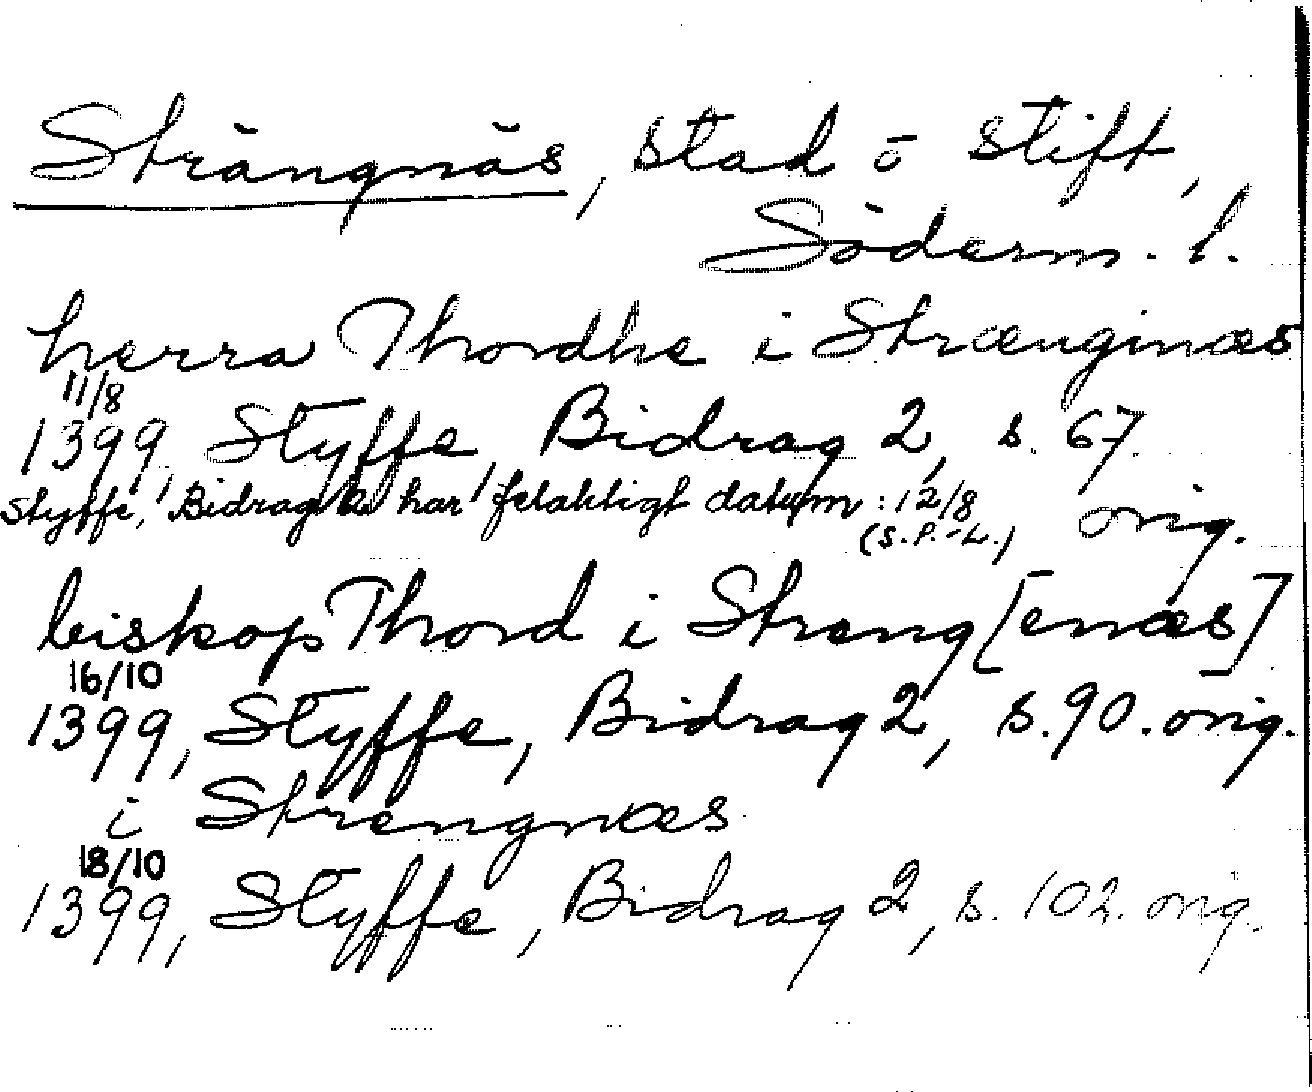 Strängnäs, stad o stift,
Söderm. l.
herra Thordhe i Strænginæs
11/8
1399, Styffe, Bidrag 2, s. 67.
Styffe, Bidrag 2 har felaktigt datum: 12/8
(S.P.-L.) orig.
biskop Thord i Streng[enæs]
16/10
1399, Styffe, Bidrag 2, s. 90. orig.
i Strengnæs
18/10
1399, Styffe, Bidrag 2, s. 102. orig.